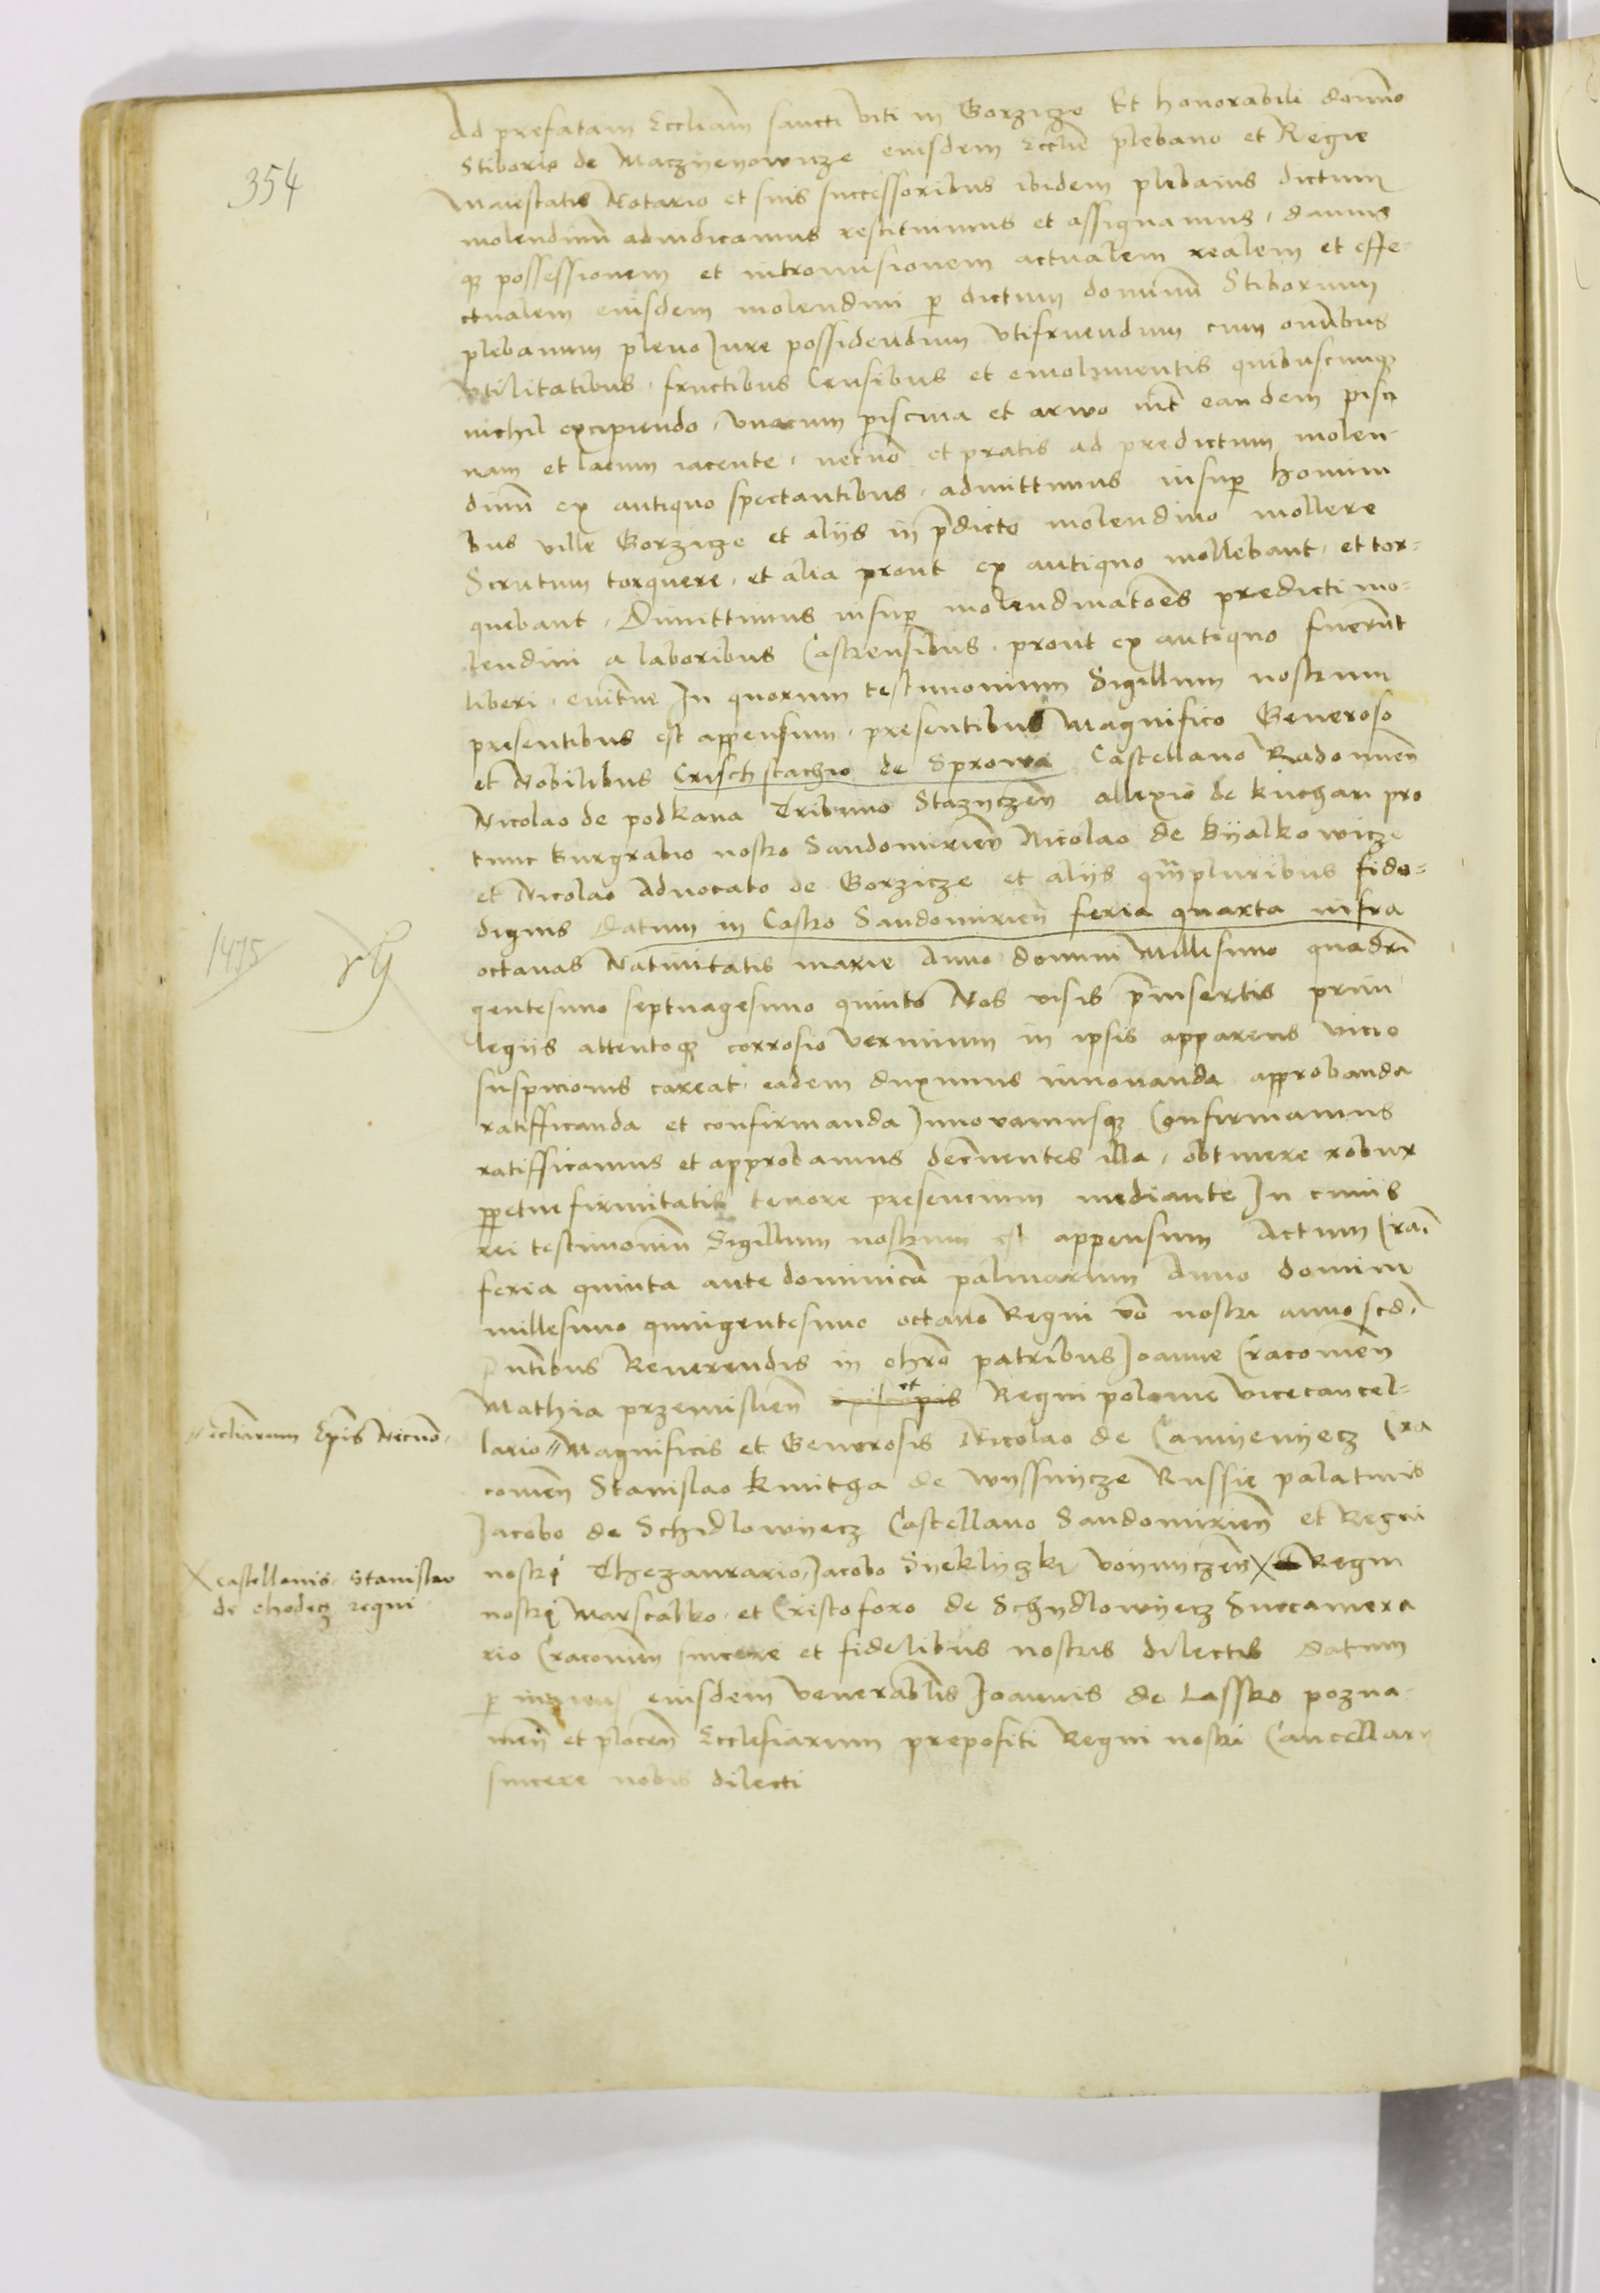 354
Ad prefatam Eccliam sancti viti in Gorzicze Et honorabili domino
Stiborio de Maczyenowicze eiusdem Ecclie plebano et Regie
Maiestatis Notario et suis successoribus ibidem plebanis dictum
molendinum adiudicamus restituimus et assignamus, damus
q3 possessionem et intromissionem actualem realem et effe-
ctualem eiusdem molendini p dictum dominum Stiborium
plebanum pleno Jure possidendum vtifruendum cum omnibus
vtilitatibus, fructibus Censibus et emolumentis quibuscunq3
nichil excipiendo, vnacum piscina et arwo int eandem pisci
nam et lacum iacente, necnon et pratis ad predictum molen-
dinum ex antiquo spectantibus, admittimus insup homini
bus ville Gorzicze et alijs in pdicto molendino mollere
Scrutum torquere, et alia prout ex antiquo mollebant, et tor-
quebant, Dimittimus insup molendinatoes predicti mo-
lendini a laboribus Castrensibus, prout ex antiquo fuerunt
liberi, In quorum testimonium Sigillum nostrum
presentibus est appensum, presentibus Magnifico Generoso
et Nobilibus Crischstachio de Sprowa Castellano Radomien
Nicolao de podkana Tribuno Stazyczen allexio de kuchari pro
tunc burgrabio nostro Sandomirien Nicolao de byalkowicze
et Nicolao Advocato de Gorzicze et alijs qmpluribus fide-
dignis Datum in Castro Sandomirien feria quarta infra
1475
octauas Natiuitatis marie Anno domini Millesimo quadrin
gentesimo septuagesimo quinto Nos visis preinsertis priui
legijs attentoq3 corrosio vermium in ipsis apparens vicio
suspicionis careat, eadem duximus innouanda approbanda
ratifficanda et confirmanda Jnnovamusq3 Confirmamus
ratifficamus et approbamus decernentes illa, obtinere robur
ppetue firmitatis tenore presencium mediante In cuius
rei testimonium Sigillum nostrum est appensum Actum Crac
feria quinta ante dominicam palmarum Anno domini
millesimo quingentesimo octauo Regni vo nostri anno scdo
Pntibus Reuerendis in chro patribus Joanne Cracouien
Mathia przemislien et Regni polonie vicecancel-
// ecliarum Epis Necno.
lario // Magnificis et Generosis Nicolao de Camyenyecz Cra
couien Stanislao kmitha de wyssnicze Russie palatinis
Jacobo de Schidlowyecz Castellano Sandomirien et Regni
nostri Thezaurario, Jacobo Syeklyczky voyniczen X Regni
X castellanis. Stanislao
de chodecz regni
nostri Marscalko, et Cristoforo de Schydlowyecz Succamera
rio Cracouien sincere et fidelibus nostris dilectis Datum
p manus eiusdem venerabilis Joannis de Lassko pozna-
nien et plocen Ecclesiarum prepositi Regni nostri Cancellarij
sincere nobis dilecti